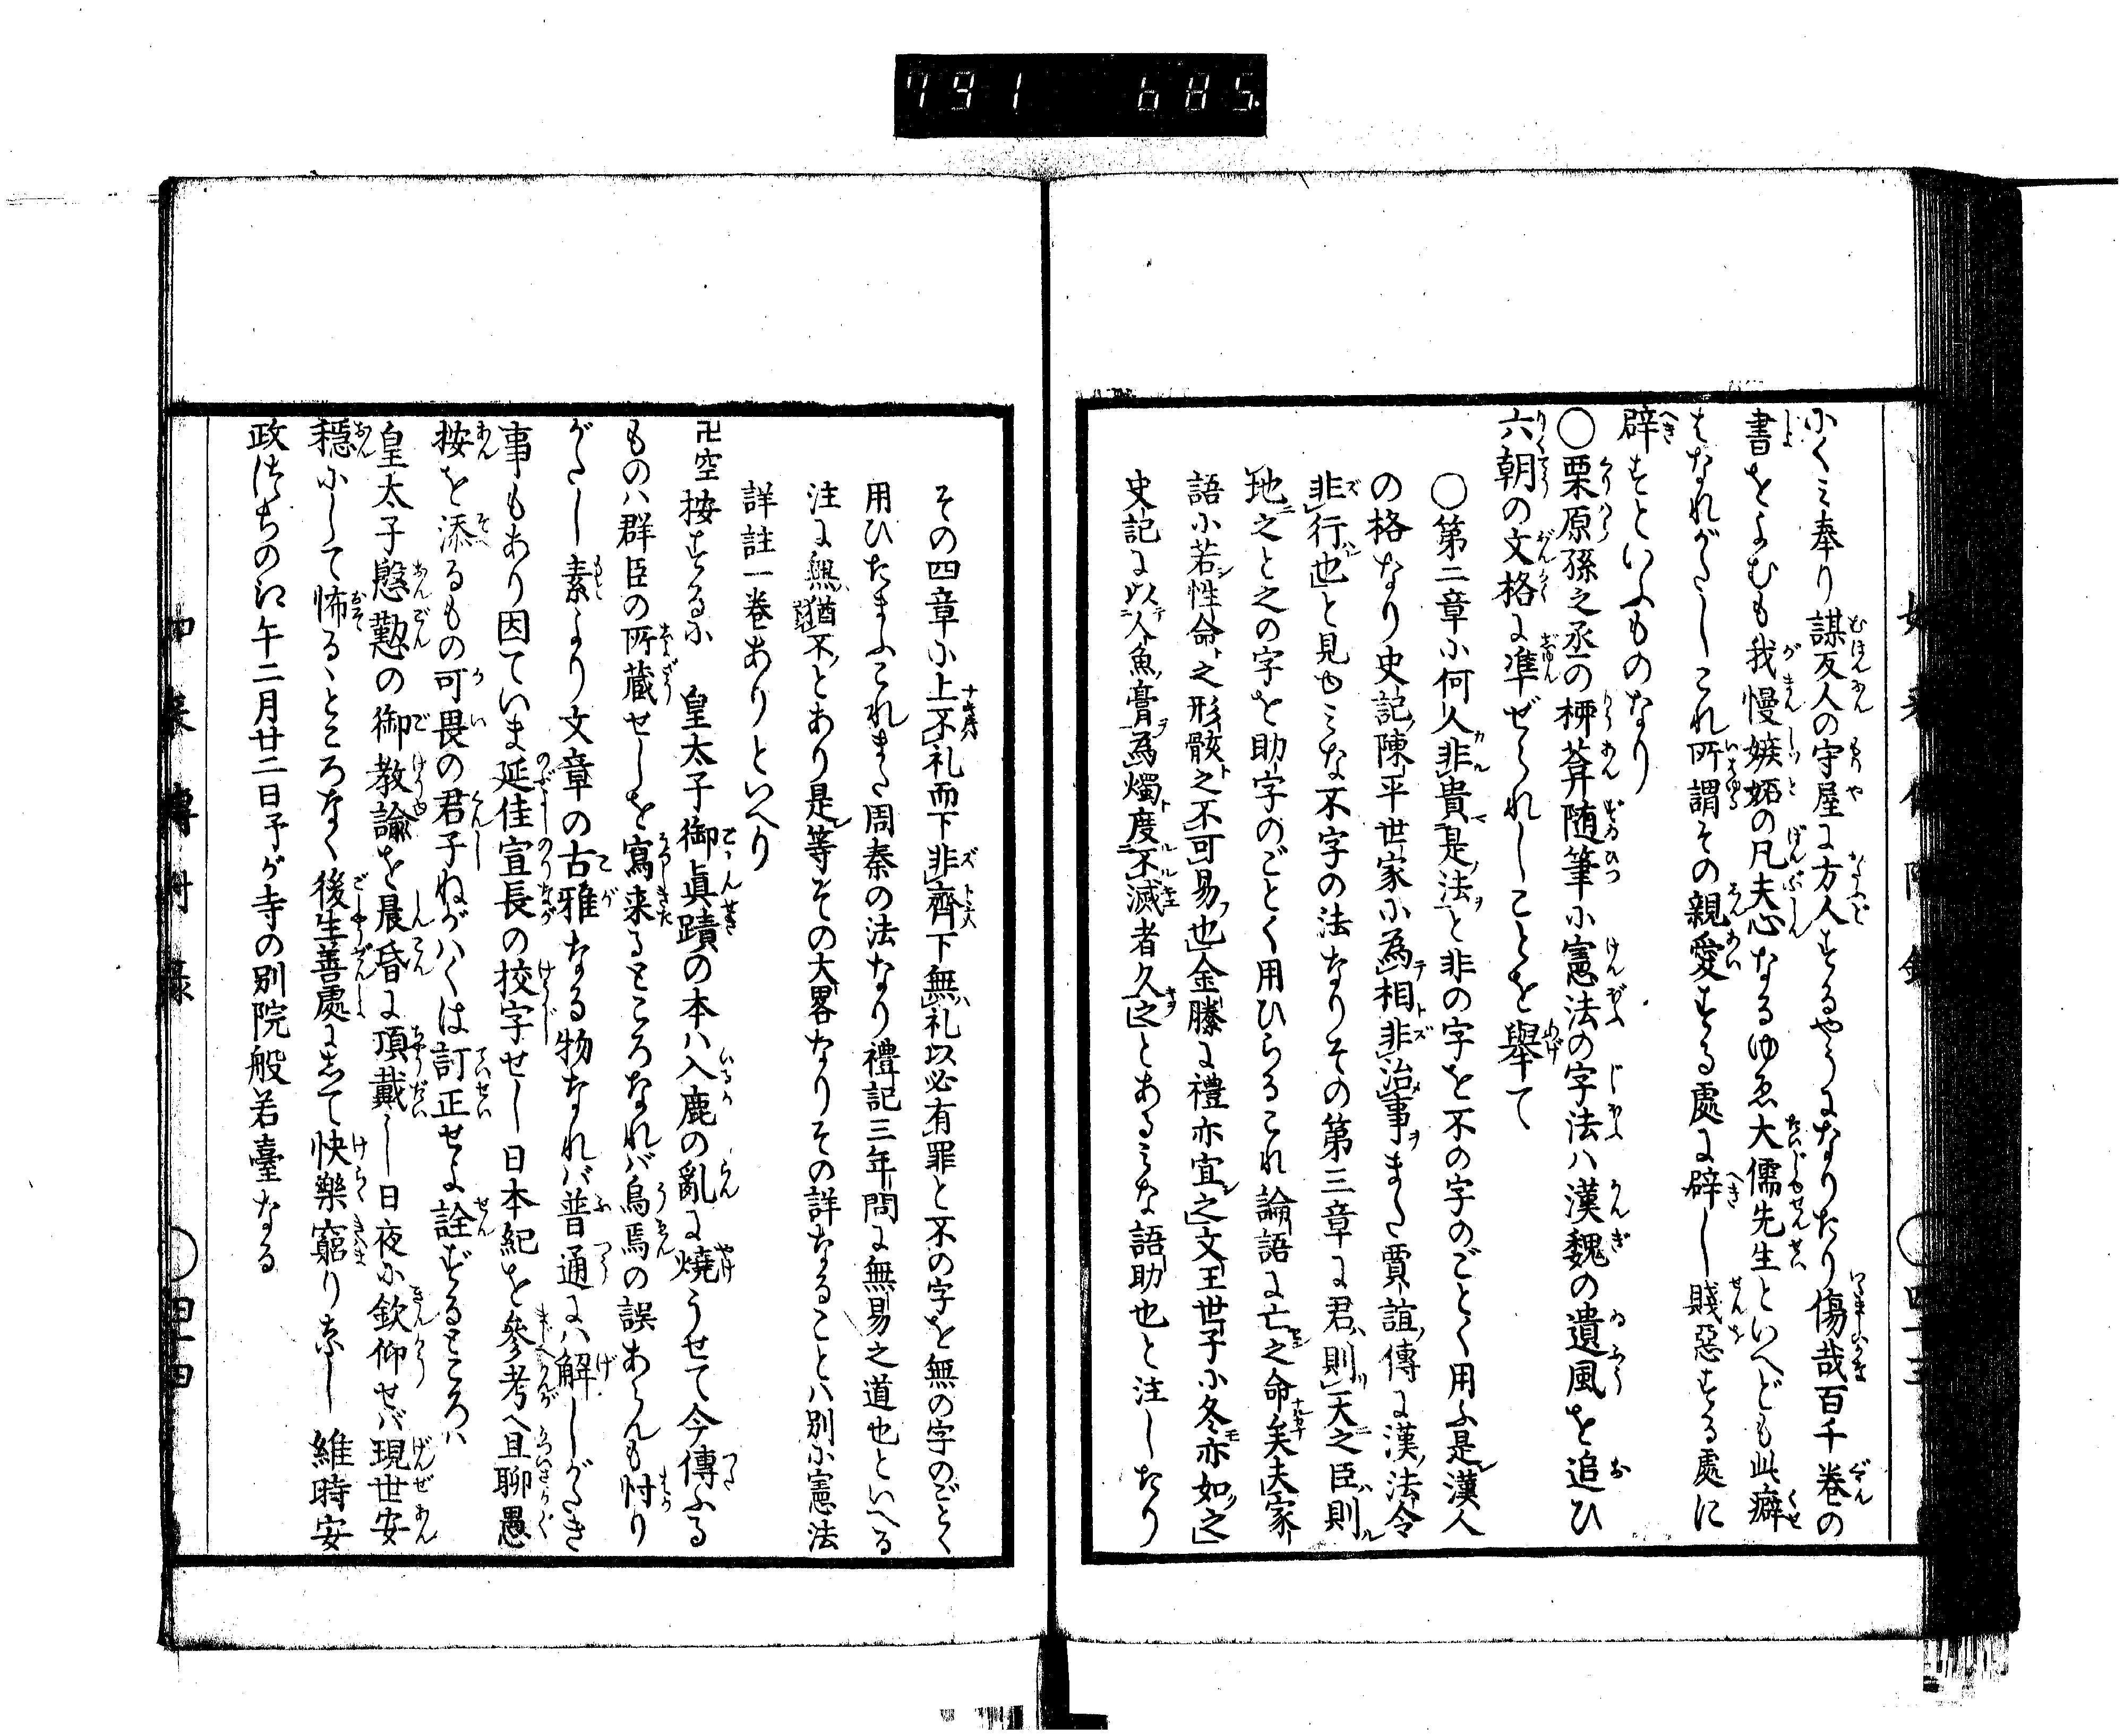 791 685
にくミ奉り謀反人の守屋に方人するやうになりたり傷哉百千巻の
書をよむも我慢嫉妬の凡夫心なるゆゑ大儒先生といへども此癖
はなれがたしこれ所謂その親愛する處に辟し賤惡する處に
辟すといふものなり
○栗原孫之丞の柳葊随筆に憲法の字法ハ漢魏の遺風を追ひ
六朝の文格に準ぜられしことを舉て
○第二章に何人非貴是法と非の字を不の字のごとく用ふ是漢人
の格なり史記陳平世家に為相非治事また賈誼傳に漢法令
非行也と見ゆミな不字の法なりその第三章に君則天之臣則
地之と之の字を助字のごとく用ひらるこれ論語に亡之命矣夫家
語に若性命之形骸之不可易也金滕に禮亦宜之文王世子に冬亦如之
史記に以人魚膏為燭度不滅者久之とあるミな語助也と注したり
その四章に上不礼而下非齊下無礼以必有罪と不の字を無の字のごとく
用ひたまふこれまた周秦の法なり禮記三年問に無易之道也といへる
注に無猶不とあり是等その大畧なりその詳なることハ別に憲法
詳註一巻ありといへり
卍空按するに 皇太子御眞蹟の本ハ入鹿の亂に燒うせて今傳ふる
ものハ群臣の所蔵せしを寫来るところなれバ烏焉の誤あらんも忖り
がたし素より文章の古雅なる物なれバ普通にハ解しがたき
事もあり因ていま延佳宣長の校字せし日本紀を參考へ且聊愚
按を添るもの可畏の君子ねがハくは訂正せよ詮ずるところハ
皇太子慇懃の御教諭を晨昏に頂戴し日夜に欽仰せバ現世安
穏にして怖るゝところなく後生善處にして快樂窮りなし 維時安
政はちの江午二月廿二日予が寺の別院般若臺なる